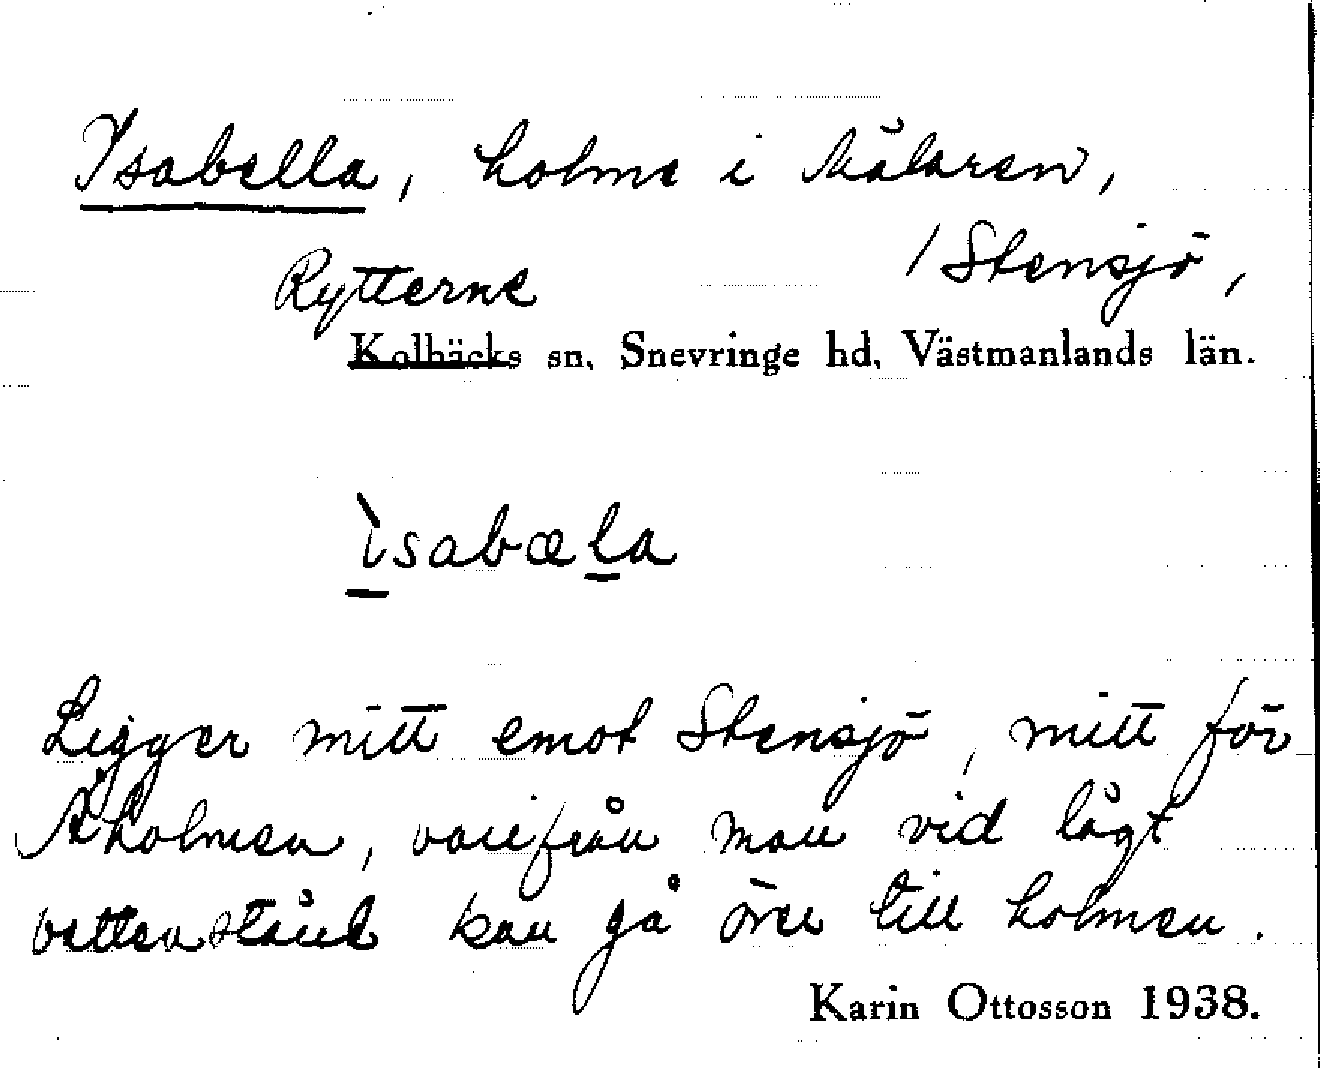 Isabella, holme i Mälaren,
/Stensjö,
Rytterne
Kolbäcks sn, Snevringe hd, Västmanlands län.
ìsabæla
Ligger mitt emot Stensjö, mitt för
Åholmen, varifrån man vid lågt
vattenstånd kan gå över till holmen.
Karin Ottosson 1938.